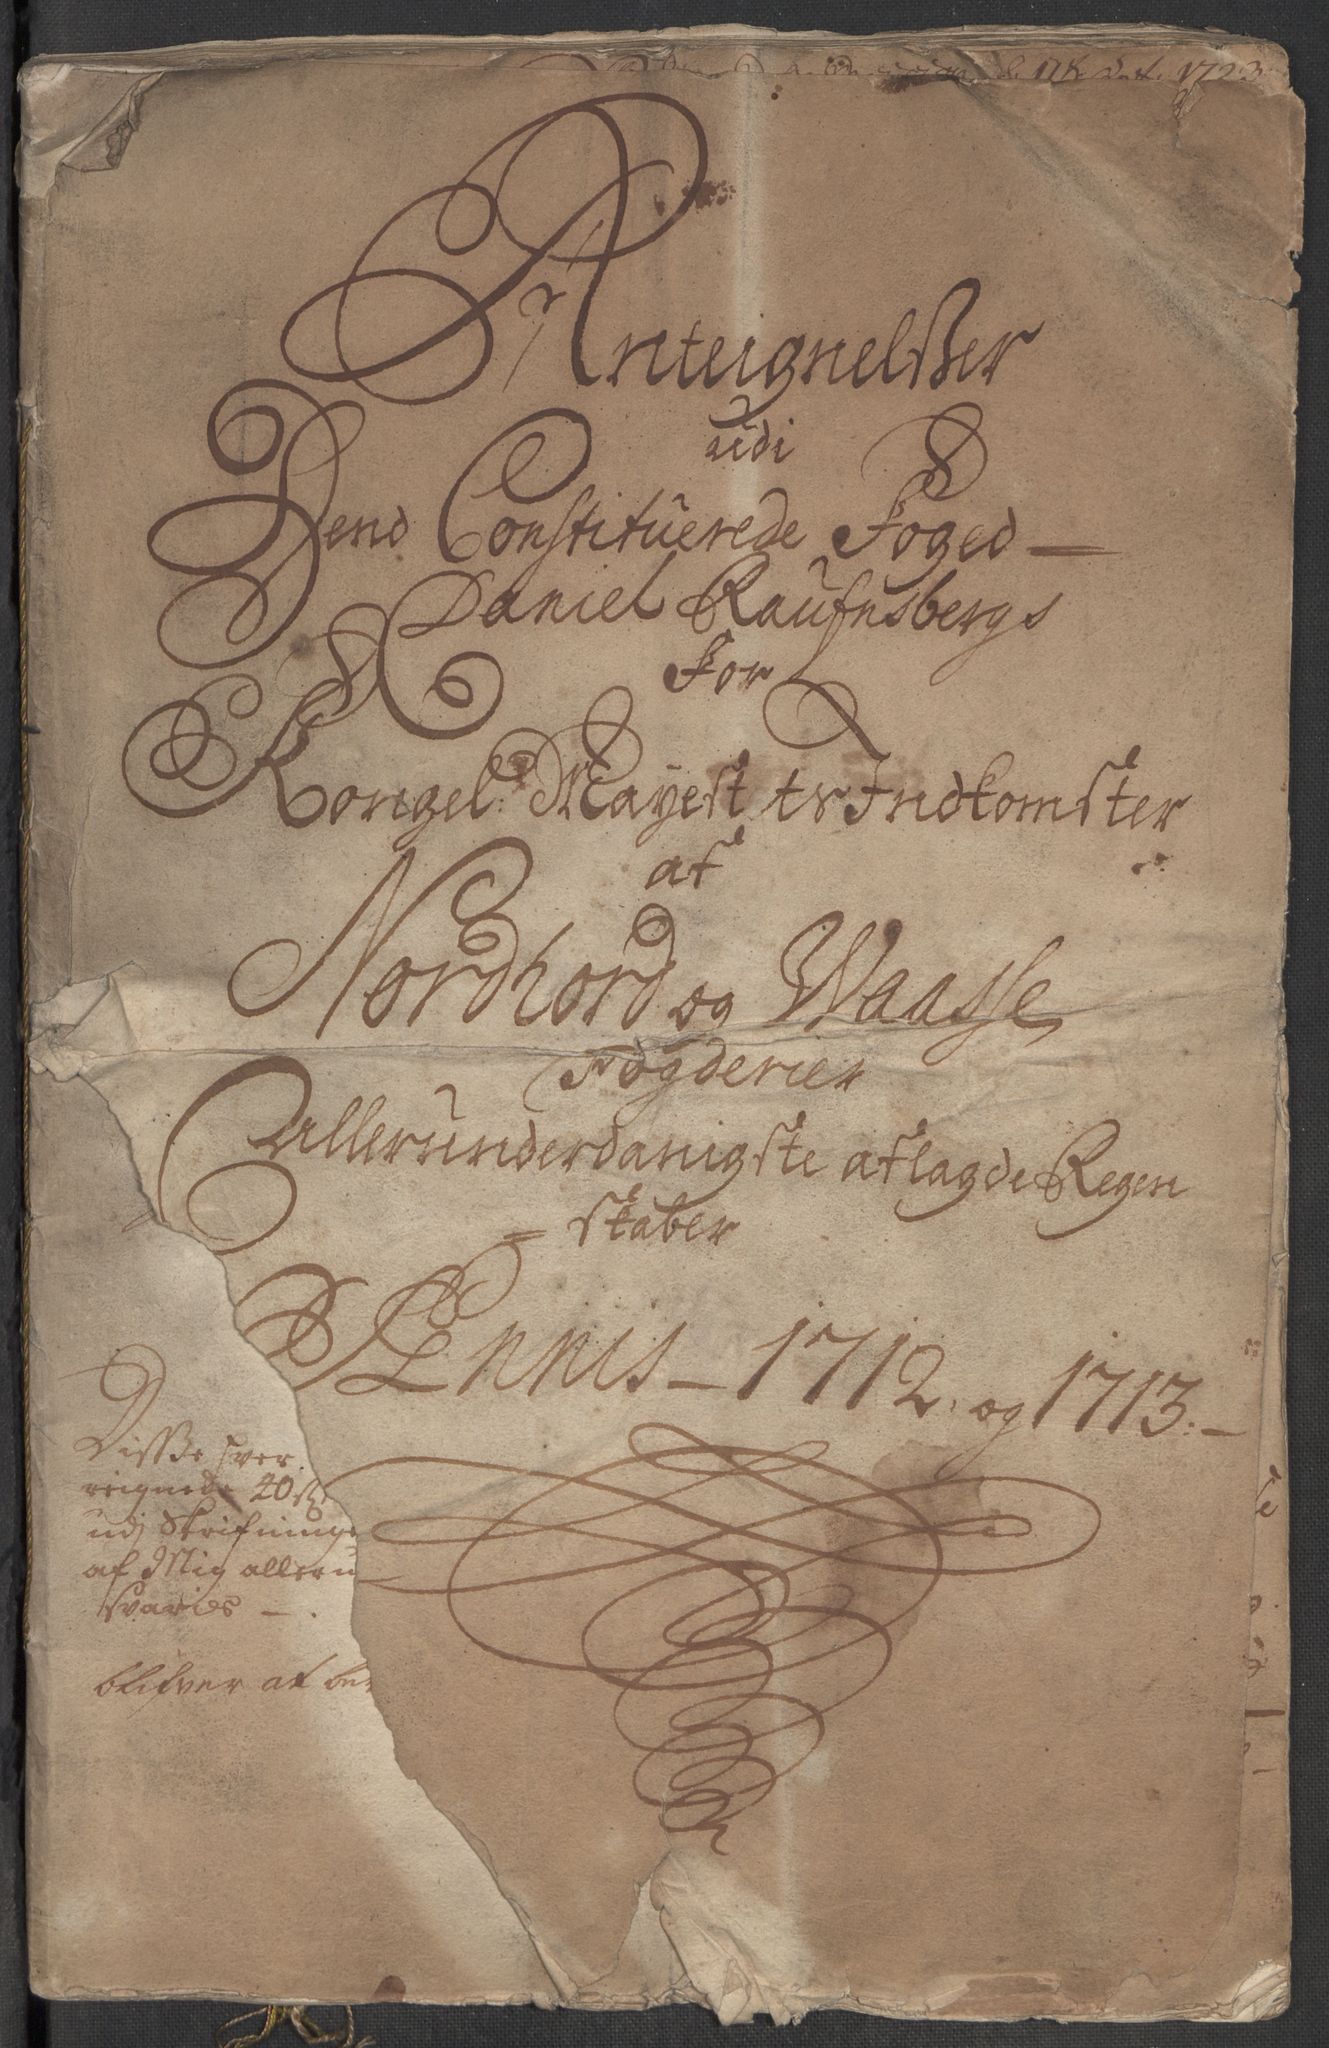 1723
Anteignelsser
udi
Dend Constituerede Foged
Daniel Raufnsbergs
For
Kongel: Mayest ts Indkomster
af
Nordhord og Waasse
Fogderier
allerunderdanigste aflagde Regen
= skaber
Ennis 1712. og 1713.
Disse
reignede 20
udj Skrifning
af Mig allern
svaris
blifver at